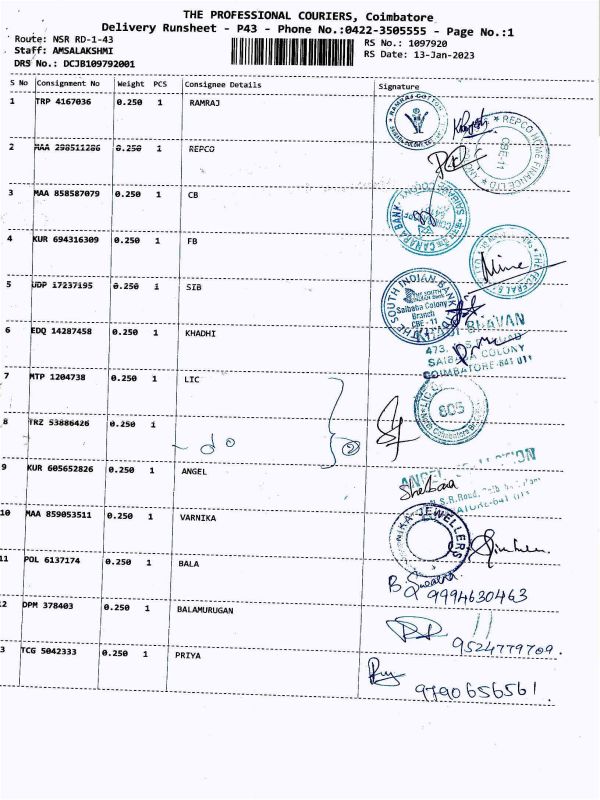 THE PROFESSIONAL COURIERS, Coimbatore
Delivery Runsheet - P43 - Phone No.:0422-3505555 - Page No.:1
Route: NSR RD-1-43
RS No.: 1097920
Staff: AMSALAKSHMI
RS Date: 13-Jan-2023
DRS No.: DCJB109792001
S No Consignment No Weight PCS Consignee Details Signature
1 TRP 4167036 0.250 1 RAMRAJ
2 MAA 298511286 0.250 1 REPCO
REPCO HOME FINANCE LTD
CBE-11
3 MAA 858587079 0.250 1 CB
CANARA BANK
4 KUR 694316309 0.250 1 FB
THE FEDERAL
5 UDP 17237195 0.250 1 SIB
THE SOUTH INDIAN BANK
THE SOUTH INDIAN BANK
Saibaba Colony
Branch
CBE - 11
6 EDQ 14287458 0.250 1 KHADHI
BHAVAN
473,
SAIBABA COLONY
COIMBATORE-641 011
7 MTP 1204738 0.250 1 LIC
LIC OF
805
8 TRZ 53886426 0.250 1
- do 2
9 KUR 605652826 0.250 1 ANGEL
ANGEL
N.S.R.Road,
10 MAA 859053511 0.250 1 VARNIKA
JEWELLERS
11 POL 6137174 0.250 1 BALA
9994630463
2 DPM 378403 0.250 1 BALAMURUGAN
9524779709.
3 TCG 5042333 0.250 1 PRIYA
9790656561.